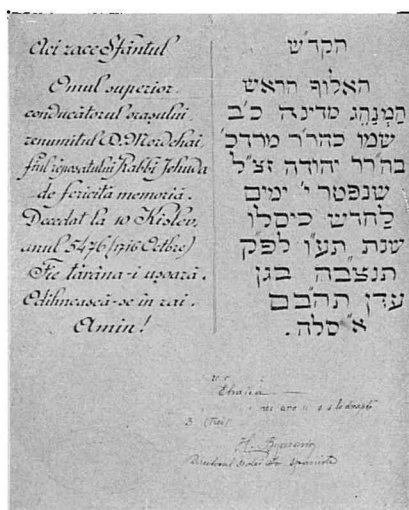 Aci zace Sfântul
Omul superior
conducătorul orașului
renumitul D. Mordehai
fiul reposatului Rabbi Jehuda
de fericită memorie.
Decedat la 10 Kislev,
anul 5476 (1716 Octbre)
Fie țărâna-i ușoară.
Odihnească-se in rai.
Amin!
הקד״ש
האלוף הראש
המנהג מדינה כ״ב
שמו כהר״ר מרדכי
בה״רר יהודה זצ״ל
שנפטר י׳ ימים
לחדש כיסלו
שנת תע״ו לפ״ק
תנצבה בגן
עדן תהבם
א״סלה.
Ebraica
3
Directorul